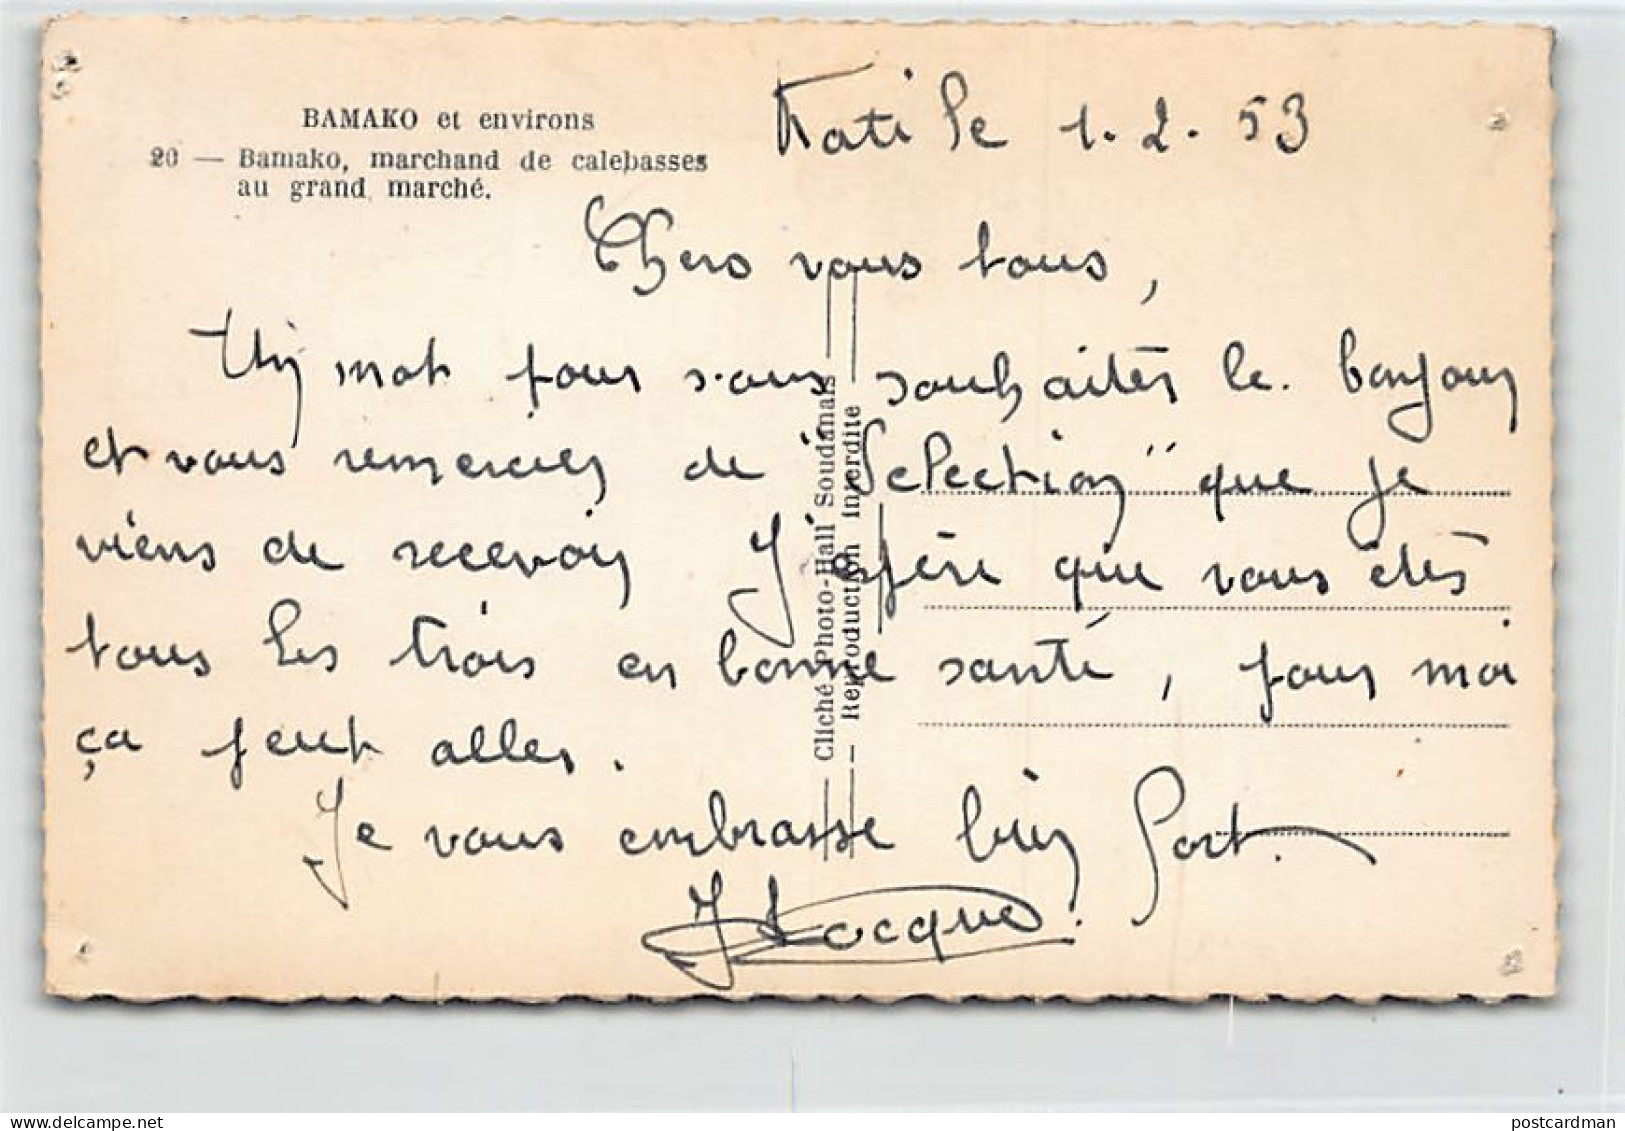 BAMAKO et environs
20 — Bamako, marchand de calebasses
au grand marché.
Kati le 1.2.53
Chers vous tous,
Un mot pour vous souhaiter le bonjour
et vous remercier de "Selection" que je
viens de recevoir J'espère que vous êtes
tous les trois en bonne santé, pour moi
ça peut aller.
Je vous embrasse bien fort.
Cliché Photo-Hall Soudanais
Reproduction interdite
postcardman